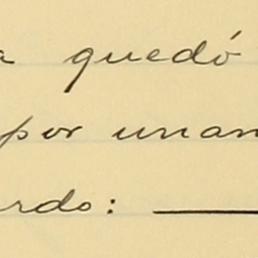 a quedó
por unan
rdo: